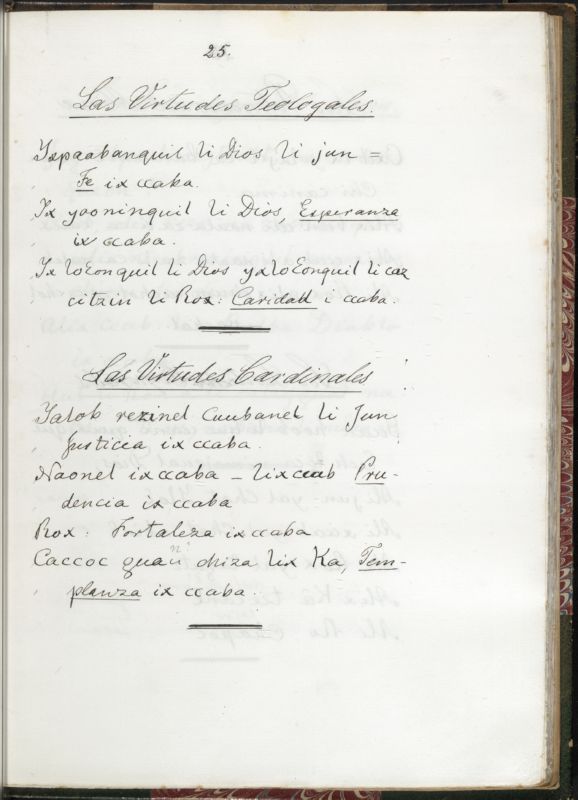 25.
Las Virtudes Teologales.
Ixpaabanquil li Dios li jun =
Fe ix ccaba.
Ix yooninquil li Dios, Esperanza
ix ccaba.
Ix loɛonquil li Dios yxloɛonquil li caz
citzin li Rox: Caridad i ccaba.
Las Virtudes Cardinales
Ialok rezinel Cuubanel li Jun
Justicia ix ccaba.
Naonel ix ccaba - lix ccab Pru-
dencia ix ccaba
Rox: Fortaleza ix ccaba
Caccoc guan chiza lix Ka, Tem-
planza ix ccaba.